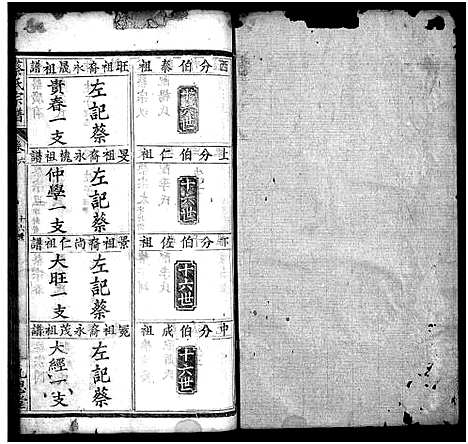 西分伯泰祖
十六世
旺祖裔永晟祖譜
左記蔡
責春一支
上分伯仁祖
十六世
旻祖裔永槐祖譜
左記蔡
仲學一支
分伯佐祖
十六世
景祖裔尚仁祖譜
左記蔡
大旺一支
中分伯成祖
十六世
冕祖裔永茂祖譜
左記蔡
大經一支
蔡氏宗譜
卷六
十六世